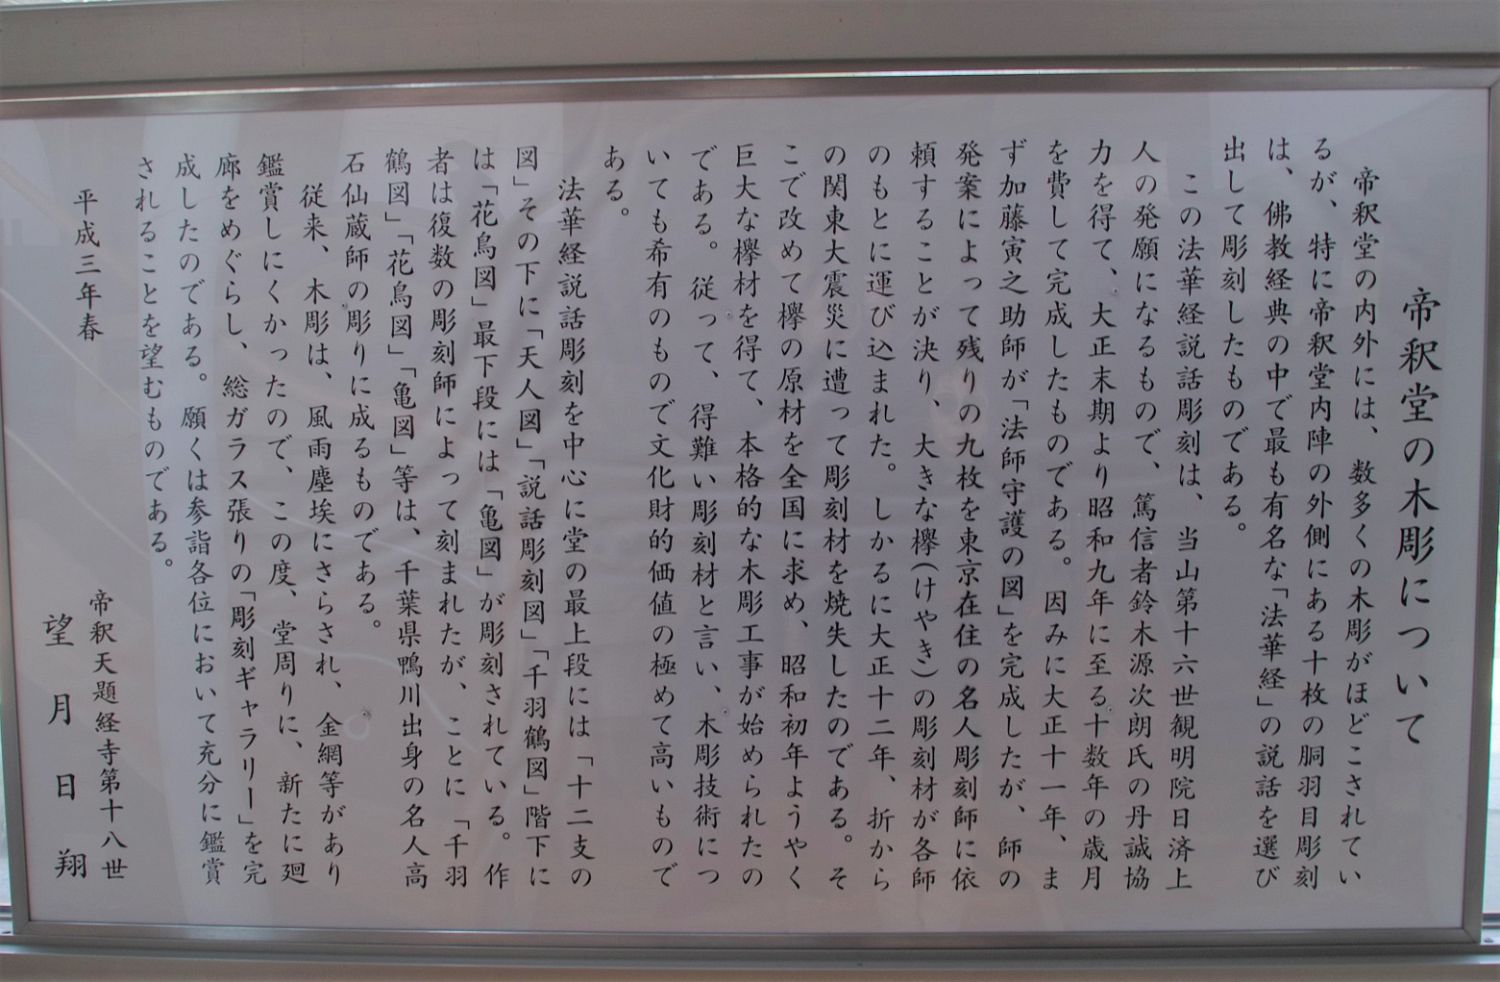 帝釈堂の木彫について
帝釈堂の内外には、数多くの木彫がほどこされてい
るが、特に帝釈堂内陣の外側にある十枚の胴羽目彫刻
は、佛教経典の中で最も有名な「法華経」の説話を選び
出して彫刻したものである。
この法華経説話彫刻は、当山第十六世観明院日済上
人の発願になるもので、篤信者鈴木源次朗氏の丹誠協
力を得て、大正末期より昭和九年に至る十数年の歳月
を費して完成したものである。因みに大正十一年、ま
ず加藤寅之助師が「法師守護の図」を完成したが、師の
発案によって残りの九枚を東京在住の名人彫刻師に依
頼することが決り、大きな欅(けやき)の彫刻材が各師
のもとに運び込まれた。しかるに大正十二年、折から
の関東大震災に遭って彫刻材を焼失したのである。そ
こで改めて欅の原材を全国に求め、昭和初年ようやく
巨大な欅材を得て、本格的な木彫工事が始められたの
である。従って、得難い彫刻材と言い、木彫技術につ
いても希有のもので文化財的価値の極めて高いもので
ある。
法華経説話彫刻を中心に堂の最上段には「十二支の
図」その下に「天人図」「説話彫刻図」「千羽鶴図」階下に
は「花鳥図」最下段には「亀図」が彫刻されている。作
者は復数の彫刻師によって刻まれたが、ことに「千羽
鶴図」「花鳥図」「亀図」等は、千葉県鴨川出身の名人高
石仙蔵師の彫りに成るものである。
従来、木彫は、風雨塵埃にさらされ、金網等があり
鑑賞しにくかったので、この度、堂周りに、新たに廻
廊をめぐらし、総ガラス張りの「彫刻ギャラリー」を完
成したのである。願くは参詣各位において充分に鑑賞
されることを望むものである。
平成三年春
帝釈天題経寺第十八世
望月日翔